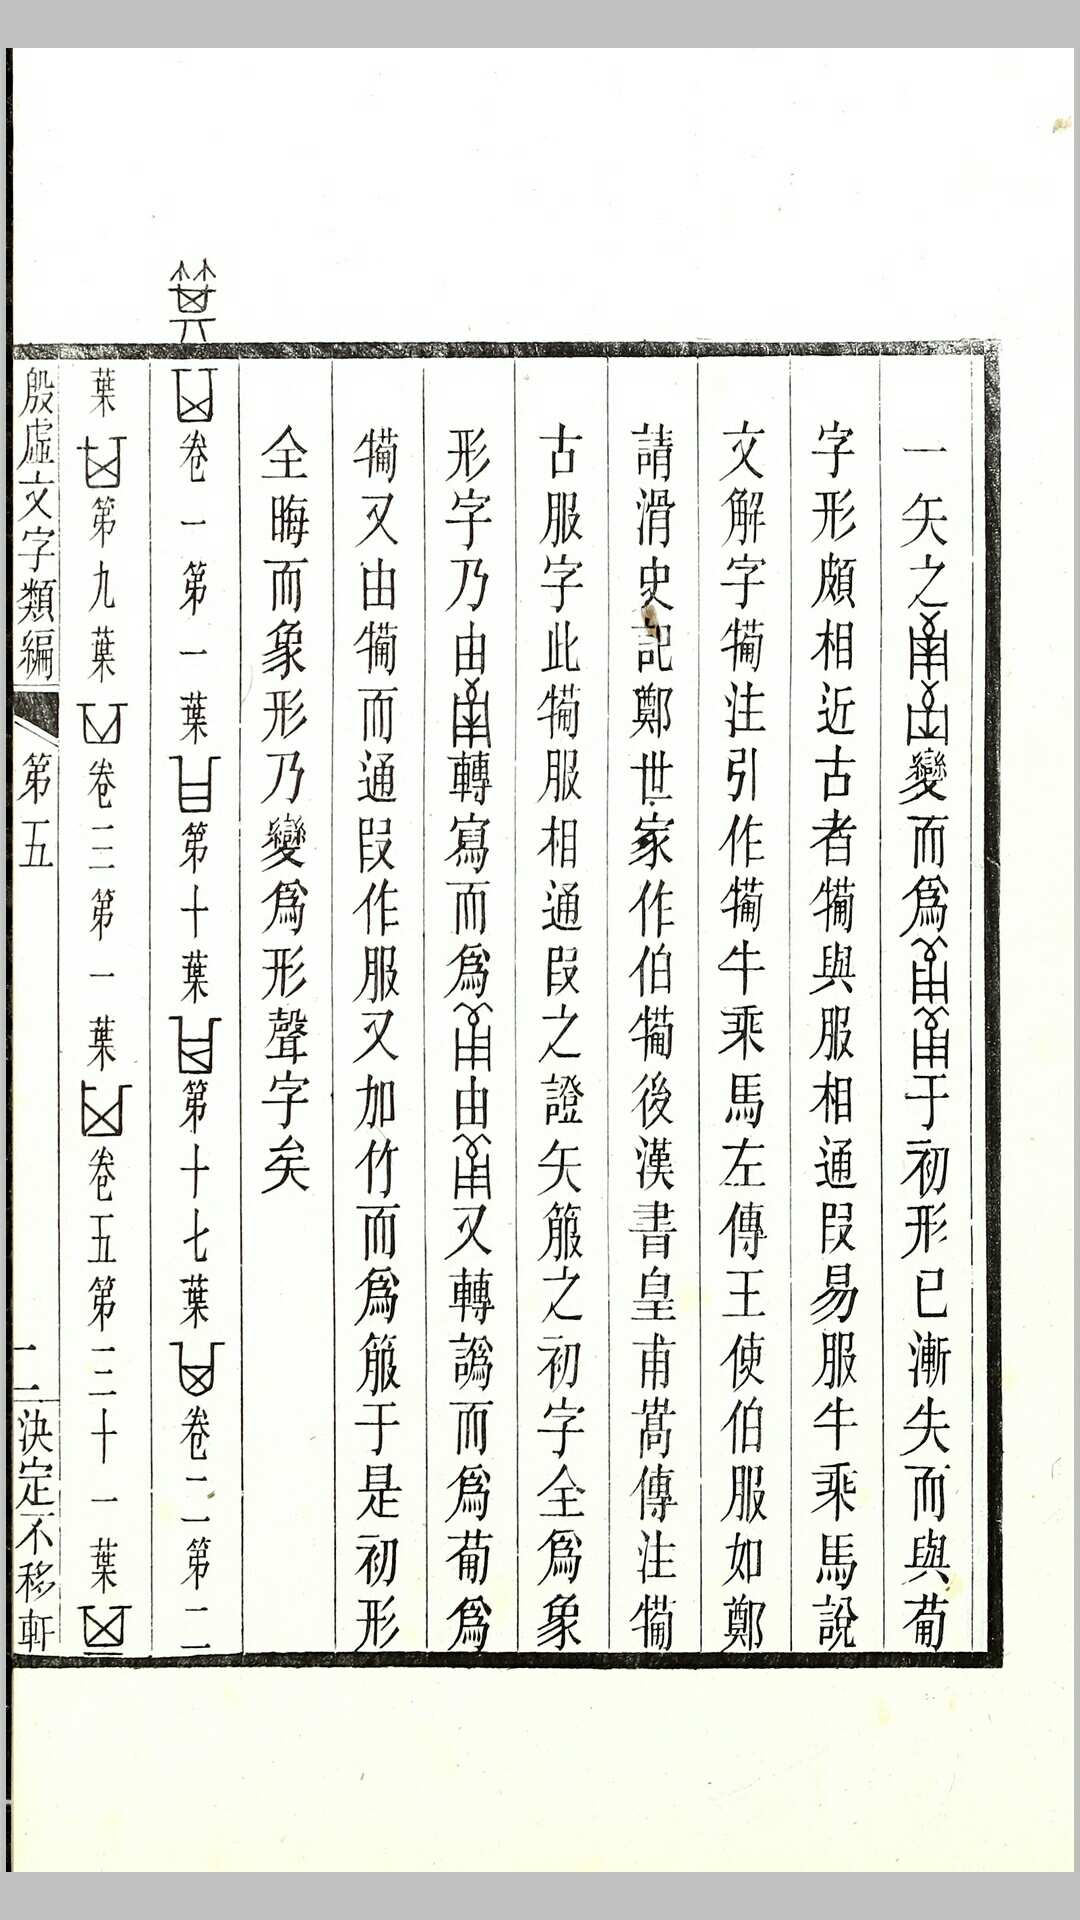 一矢之變而爲于初形已漸失而與葡
字形頗相近古者犕與服相通叚易服牛乘馬說
文解字犕注引作犕牛乘馬左傳王使伯服如鄭
請滑史記鄭世家作伯犕後漢書皇甫蒿傳注犕
古服字此犕服相通叚之證矢箙之初字全爲象
形字乃由轉寫而爲由又轉譌而爲葡爲
犕又由犕而通叚作服又加竹而爲箙于是初形
全晦而象形乃變爲形聲字矣
箕
卷一第一葉第十葉第十七葉卷二第二
葉第九葉卷三第一葉卷五第三十一葉
殷虛文字類編 第五 二 決定不移軒